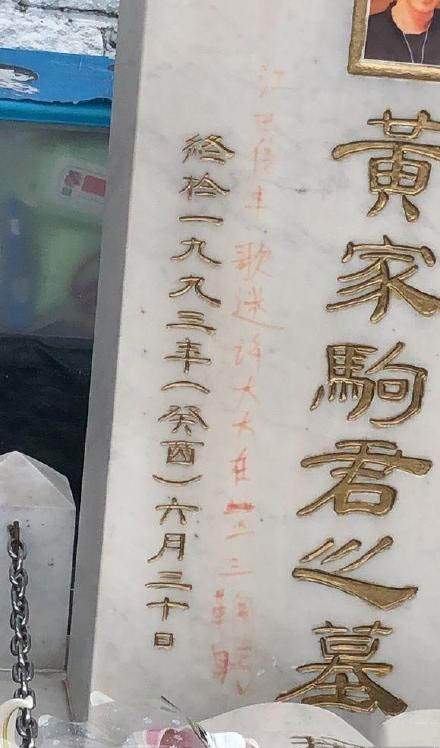 黃家駒君之墓
江 歌迷許大大在 三鞠躬
終於一九九三年(癸酉)六月三十日